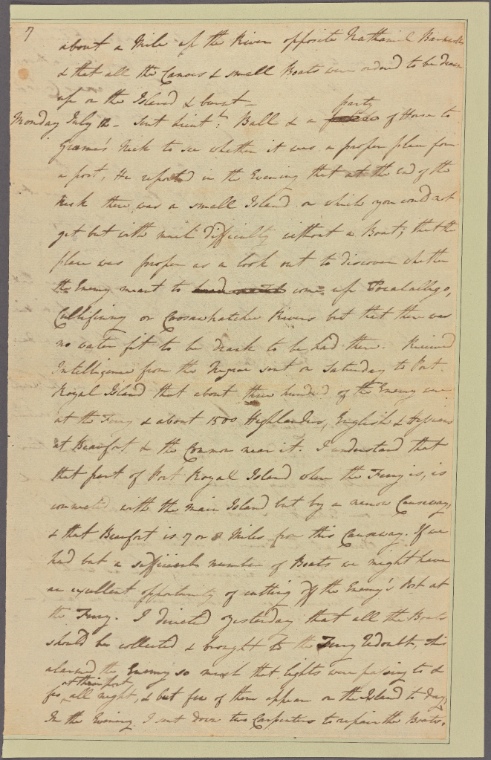 7
about a Mile up the River opposite Nathaniel
& that all the Canoes & small Boats were ordered to be drawn
up on the Island & burnt
Monday July 12 - Sent Lieut. Ball & a party of Horse to
Grame's Neck to see whether it was a proper place for
a post, He reported in the Evening that at the end of the
Neck there was a small Island on which you could not
get but with much difficulty without a Boat, that the
place was proper as a look out to discover whether
the Enemy meant to come up Pocataligo,
or Coosawhatchie Rivers but that there was
no water fit to be drank to be had there. Received
Intelligence from the Negroe sent on Saturday to Port
Royal Island that about three hundred of the Enemy were
at the Ferry & about 1500 Highlanders, English & Hessians
at Beaufort & the Common near it. I understand that
that part of Port Royal Island where the Ferry is, is
connected with the main Island but by a narrow Causeway
& that Beaufort is 7 or 8 Miles from this Causeway. If we
had but a sufficient number of Boats we might have
an excellent opportunity of cutting off the Enemy's Post at
the Ferry. I directed yesterday that all the Boats
should be collected & brought to the Ferry Redoubt, this
alarmed the Enemy so much that lights were passing to &
fro at their post all night, & but few of them appear on the Island to day.
In the Evening I sent down two Carpenters to repair the Boats.